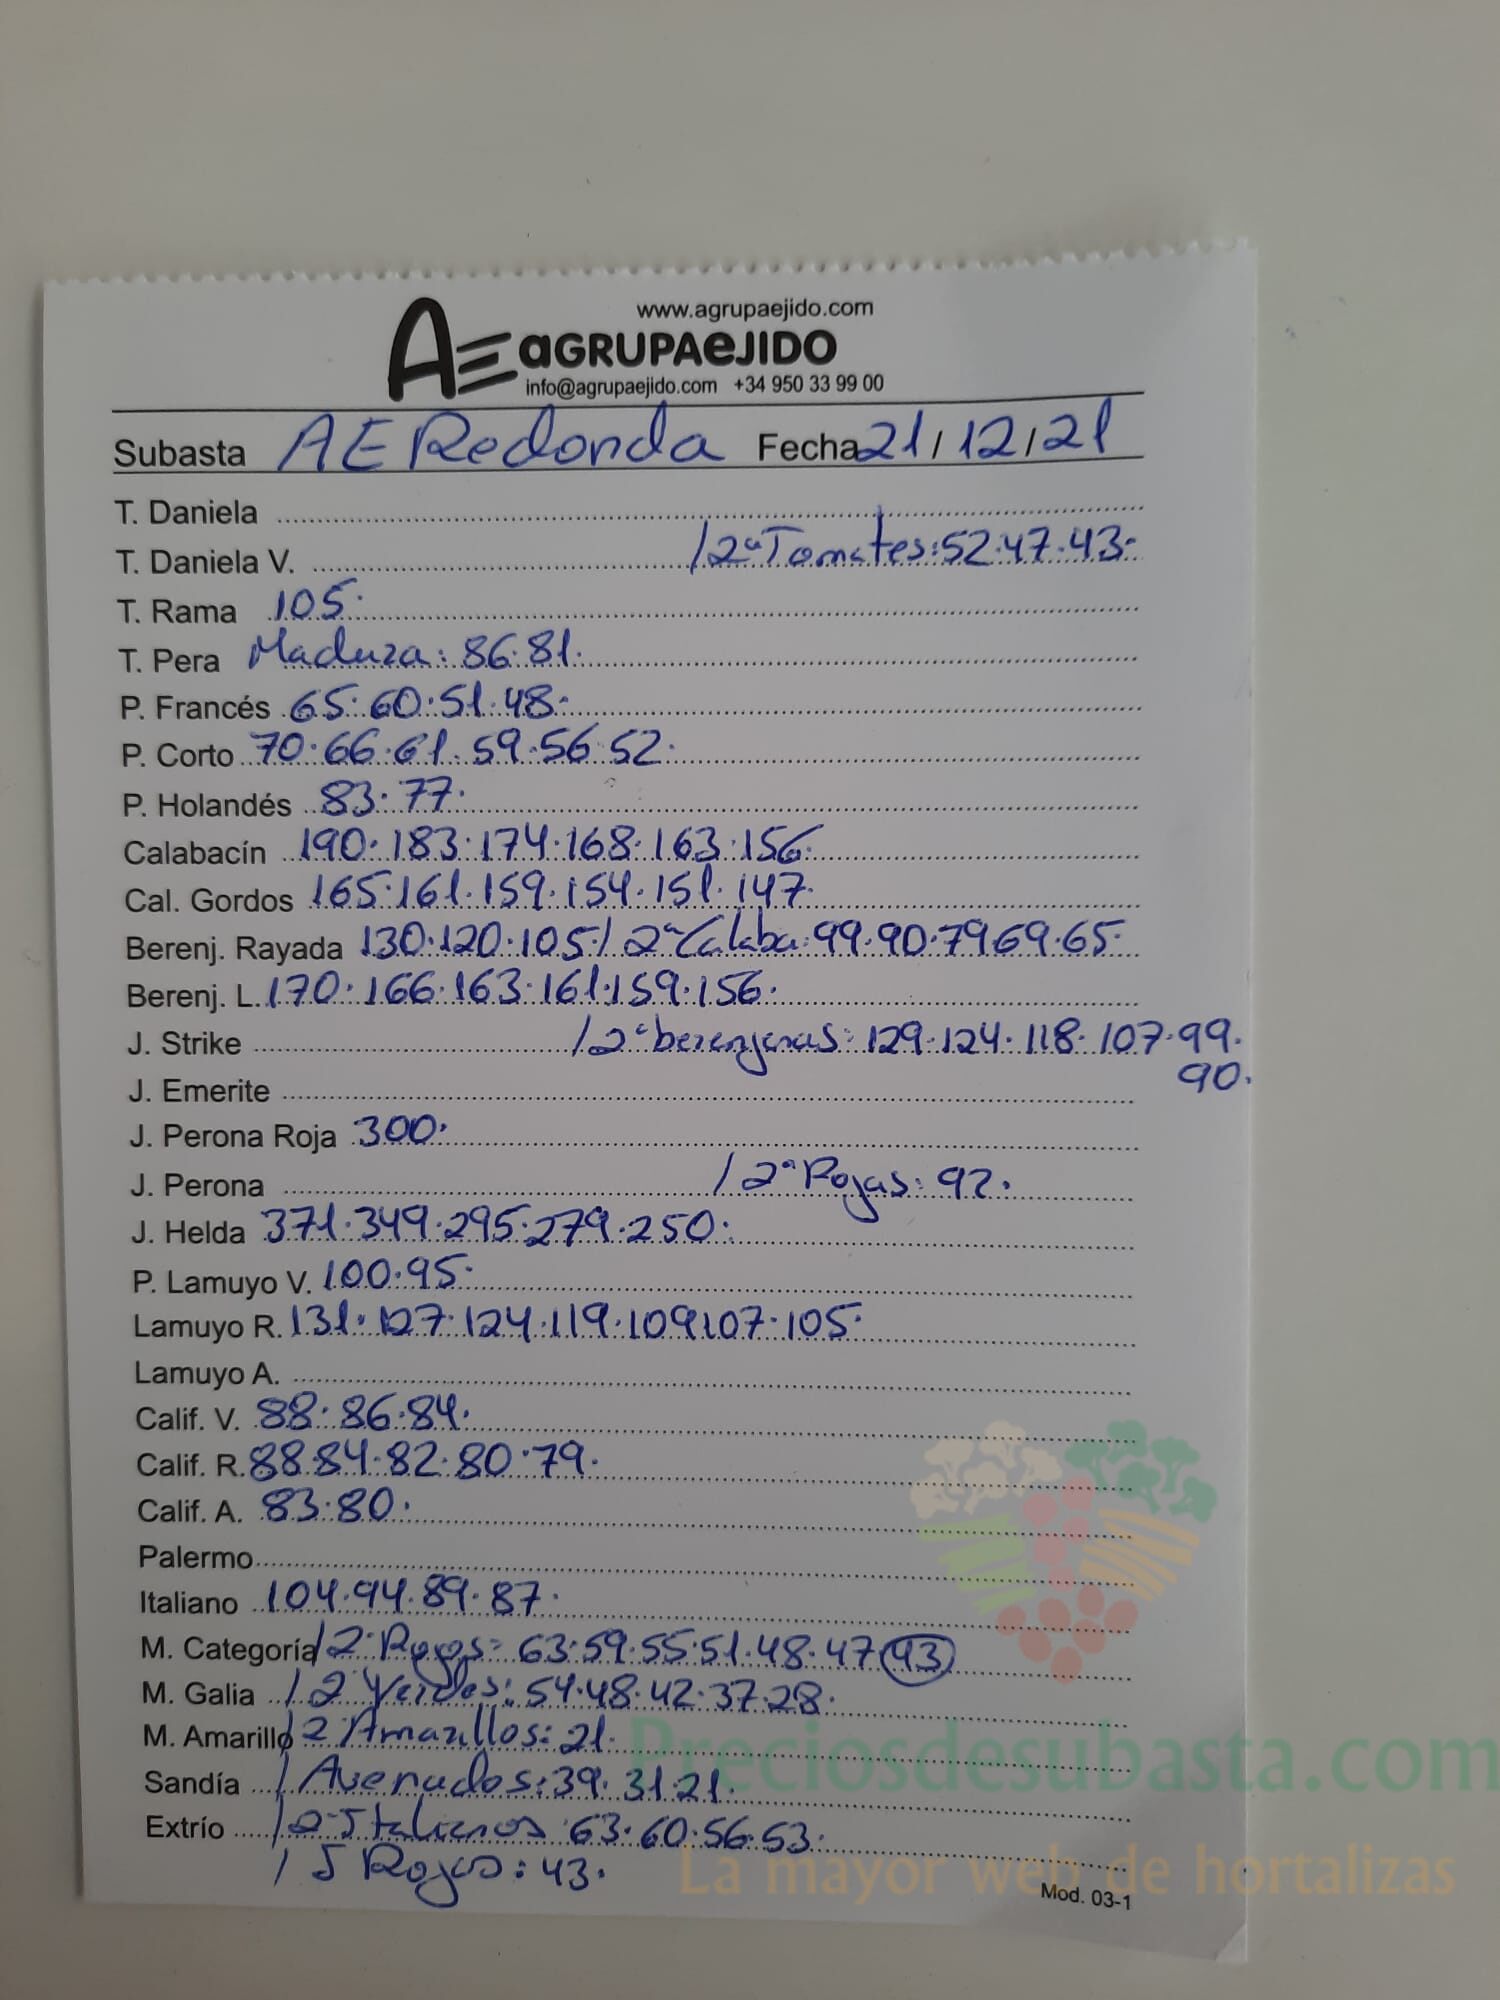 www.agrupaejido.com
AE aGRUPAeJIDO
info@agrupaejido.com +34 950 33 99 00
Subasta AE Redonda Fecha 21/12/21
T. Daniela
T. Daniela V. /2ª Tomates: 52.47.43.
T. Rama 105.
T. Pera Madura: 86.81.
P. Francés 65.60.51.48.
P. Corto 70.66.61.59.56.52.
P. Holandés 83.77.
Calabacín 190.183.174.168.163.156.
Cal. Gordos 165.161.159.154.151.147.
Berenj. Rayada 130.120.105./2ª Calaba: 99.90.79.69.65.
Berenj. L. 170.166.163.161.159.156.
J. Strike /2ª berenjenas: 129.124.118.107.99.
90.
J. Emerite
J. Perona Roja 300.
J. Perona /2ª Rojas: 92.
J. Helda 371.349.295.279.250.
P. Lamuyo V. 100.95.
Lamuyo R. 131.127.124.119.109.107.105.
Lamuyo A.
Calif. V. 88.86.84.
Calif. R. 88.84.82.80.79.
Calif. A. 83.80.
Palermo
Italiano 104.94.89.87.
M. Categoría /2ª Rojos: 63.59.55.51.48.47.43
M. Galia /2 Verdes: 54.48.42.37.28.
M. Amarillo /2 Amarillos: 21.
Sandía / Asenados: 39.31.21.
Extrío /2 Italianos 63.60.56.53.
/ J Rojos: 43.
Mod. 03-1
Preciosdesubasta.com
La mayor web de hortalizas